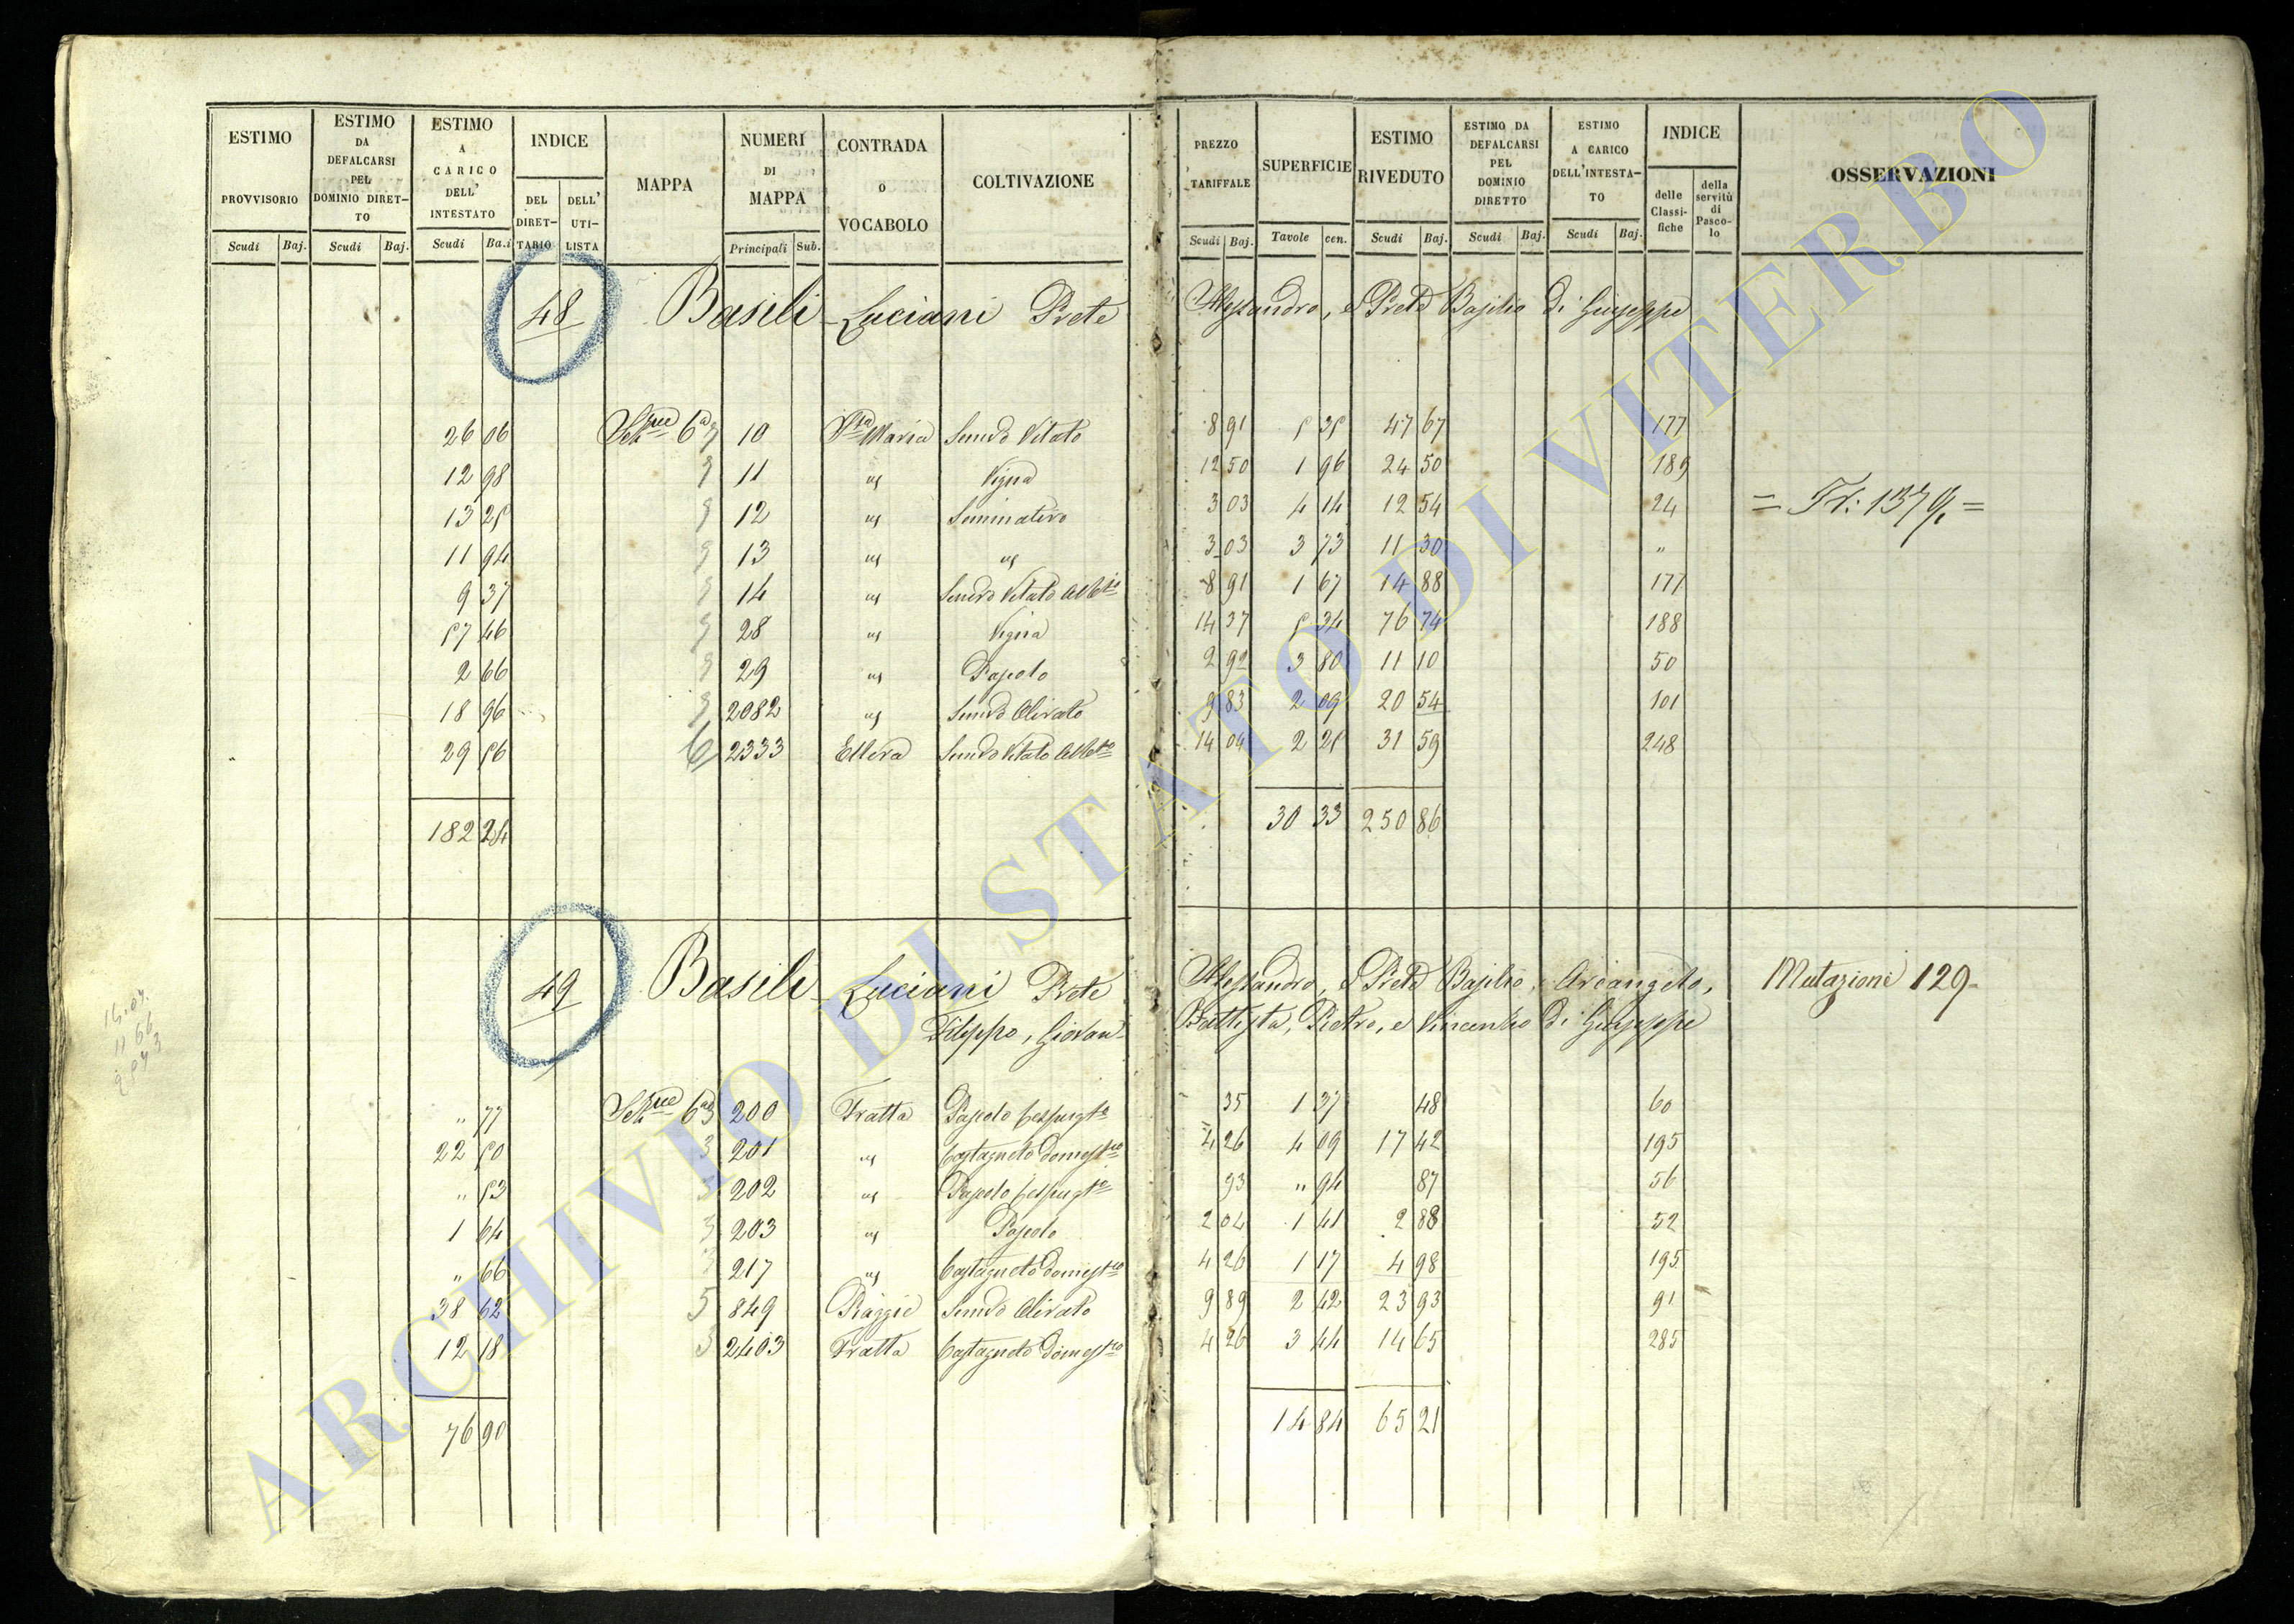 ESTIMO PROVVISORIO Scudi Baj. ESTIMO DA DEFALCARSI PEL DOMINIO DIRET-TO Scudi Baj. ESTIMO A CARICO DELL' INTESTATO Scudi Ba.i INDICE DEL DIRET-TARIO DELL' UTI-LISTA MAPPA NUMERI DI MAPPA Principali Sub. CONTRADA O VOCABOLO COLTIVAZIONE PREZZO TARIFFALE Scudi Baj. SUPERFICIE Tavole cen. ESTIMO RIVEDUTO Scudi Baj. ESTIMO DA DEFALCARSI PEL DOMINIO DIRETTO Scudi Baj. ESTIMO A CARICO DELL'INTESTA-TO Scudi Baj. INDICE delle Classi-fiche della servitù di Pasco-lo OSSERVAZIONI
48 Basili Luciani Prete Alessandro, e Prete Basilio di Giuseppe
26 06 Sezne 6a 3 10 Sta Maria Semvo Vitato 8 91 5 35 47 67 177
12 98 3 11 " Vigna 12 50 1 96 24 50 189
13 25 3 12 " Seminativo 3 03 4 14 12 54 24 = Tr: 137 =
11 94 3 13 " " 3 03 3 73 11 30 "
9 37 3 14 " Semvo Vitato Albto 8 91 1 67 14 88 177
57 46 3 28 " Vigna 14 37 5 34 76 74 188
2 66 3 29 " Pascolo 2 92 3 80 11 10 50
18 96 3 2082 " Semvo Olivato 9 83 2 09 20 54 101
29 56 6 2333 Ellera Semvo Vitato Albto 14 04 2 25 31 59 248
182 24 30 33 250 86
49 Basili Luciani Prete Alessandro, e Prete Basilio, Arcangelo, Mutazioni 129
Filippo, Giovan Battista, Pietro, e Vincenzo di Giuseppe
" 77 Sezne 6a 3 200 Fratta Pascolo Cespugto 35 1 37 48 60
22 50 3 201 " Castagneto domestco 4 26 4 09 17 42 195
" 53 3 202 " Pascolo Cespugto 93 " 94 87 56
1 64 3 203 " Pascolo 2 04 1 41 2 88 52
" 66 3 217 " Castagneto domestco 4 26 1 17 4 98 195
38 62 5 849 Piaggie Semvo Olivato 9 89 2 42 23 93 91
12 18 3 2403 Fratta Castagneto domestco 4 26 3 44 14 65 285
76 90 14 84 65 21
ARCHIVIO DI STATO DI VITERBO